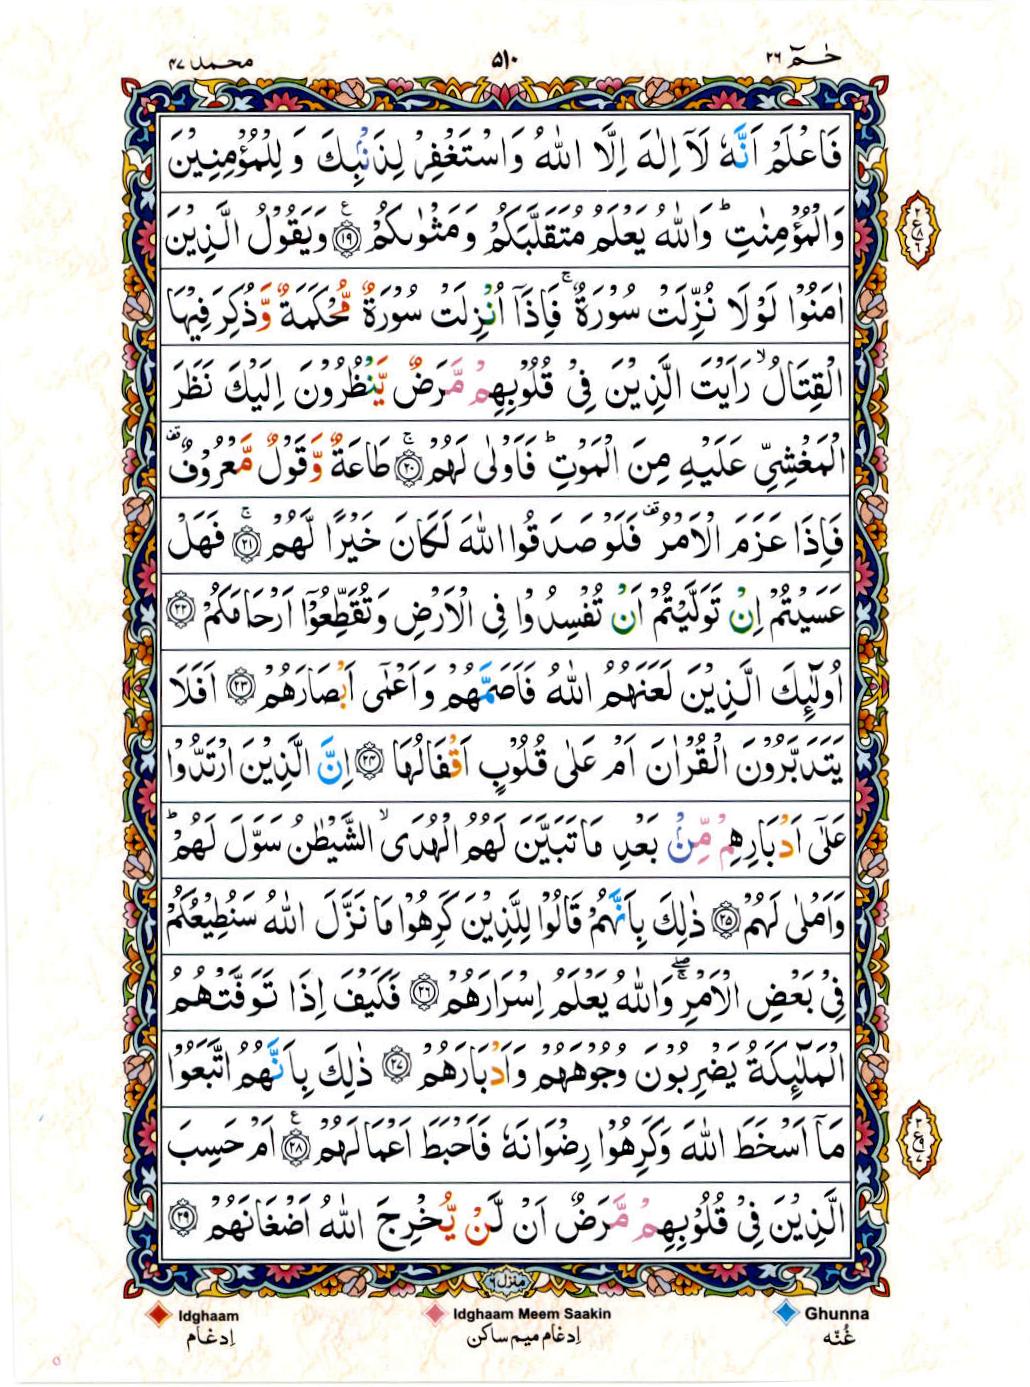 محمد ۴۷ ۵۱۰ حٰمٓ ۲۶
فَاعْلَمْ اَنَّهٗ لَاۤ اِلٰهَ اِلَّا اللّٰهُ وَاسْتَغْفِرْ لِذَنْۢبِكَ وَ لِلْمُؤْمِنِيْنَ
وَالْمُؤْمِنٰتِ ؕ وَاللّٰهُ يَعْلَمُ مُتَقَلَّبَكُمْ وَ مَثْوٰىكُمْ ﴿۱۹﴾ ع وَيَقُوْلُ الَّذِيْنَ
اٰمَنُوْا لَوْ لَا نُزِّلَتْ سُوْرَةٌ ۚ فَاِذَاۤ اُنْزِلَتْ سُوْرَةٌ مُّحْكَمَةٌ وَّذُكِرَ فِيْهَا
الْقِتَالُ ۙ رَاَيْتَ الَّذِيْنَ فِيْ قُلُوْبِهِمْ مَّرَضٌ يَّنْظُرُوْنَ اِلَيْكَ نَظَرَ
الْمَغْشِيِّ عَلَيْهِ مِنَ الْمَوْتِ ؕ فَاَوْلٰى لَهُمْ ﴿۲۰﴾ ۚ طَاعَةٌ وَّقَوْلٌ مَّعْرُوْفٌ ۫
فَاِذَا عَزَمَ الْاَمْرُ ۫ فَلَوْ صَدَقُوا اللّٰهَ لَكَانَ خَيْرًا لَّهُمْ ﴿۲۱﴾ ۚ فَهَلْ
عَسَيْتُمْ اِنْ تَوَلَّيْتُمْ اَنْ تُفْسِدُوْا فِي الْاَرْضِ وَتُقَطِّعُوْۤا اَرْحَامَكُمْ ﴿۲۲﴾
اُولٰٓئِكَ الَّذِيْنَ لَعَنَهُمُ اللّٰهُ فَاَصَمَّهُمْ وَاَعْمٰۤى اَبْصَارَهُمْ ﴿۲۳﴾ اَفَلَا
يَتَدَبَّرُوْنَ الْقُرْاٰنَ اَمْ عَلٰى قُلُوْبٍ اَقْفَالُهَا ﴿۲۴﴾ اِنَّ الَّذِيْنَ ارْتَدُّوْا
عَلٰۤى اَدْبَارِهِمْ مِّنْۢ بَعْدِ مَا تَبَيَّنَ لَهُمُ الْهُدَى ۙ الشَّيْطٰنُ سَوَّلَ لَهُمْ ؕ
وَاَمْلٰى لَهُمْ ﴿۲۵﴾ ذٰلِكَ بِاَنَّهُمْ قَالُوْا لِلَّذِيْنَ كَرِهُوْا مَا نَزَّلَ اللّٰهُ سَنُطِيْعُكُمْ
فِيْ بَعْضِ الْاَمْرِ ۖۚ وَاللّٰهُ يَعْلَمُ اِسْرَارَهُمْ ﴿۲۶﴾ فَكَيْفَ اِذَا تَوَفَّتْهُمُ
الْمَلٰٓئِكَةُ يَضْرِبُوْنَ وُجُوْهَهُمْ وَاَدْبَارَهُمْ ﴿۲۷﴾ ذٰلِكَ بِاَنَّهُمُ اتَّبَعُوْا
مَاۤ اَسْخَطَ اللّٰهَ وَكَرِهُوْا رِضْوَانَهٗ فَاَحْبَطَ اَعْمَالَهُمْ ﴿۲۸﴾ ع اَمْ حَسِبَ
الَّذِيْنَ فِيْ قُلُوْبِهِمْ مَّرَضٌ اَنْ لَّنْ يُّخْرِجَ اللّٰهُ اَضْغَانَهُمْ ﴿۲۹﴾
منزل ۶
Idghaam Idghaam Meem Saakin Ghunna
اِدغام اِدغام میم ساکن غُنّه